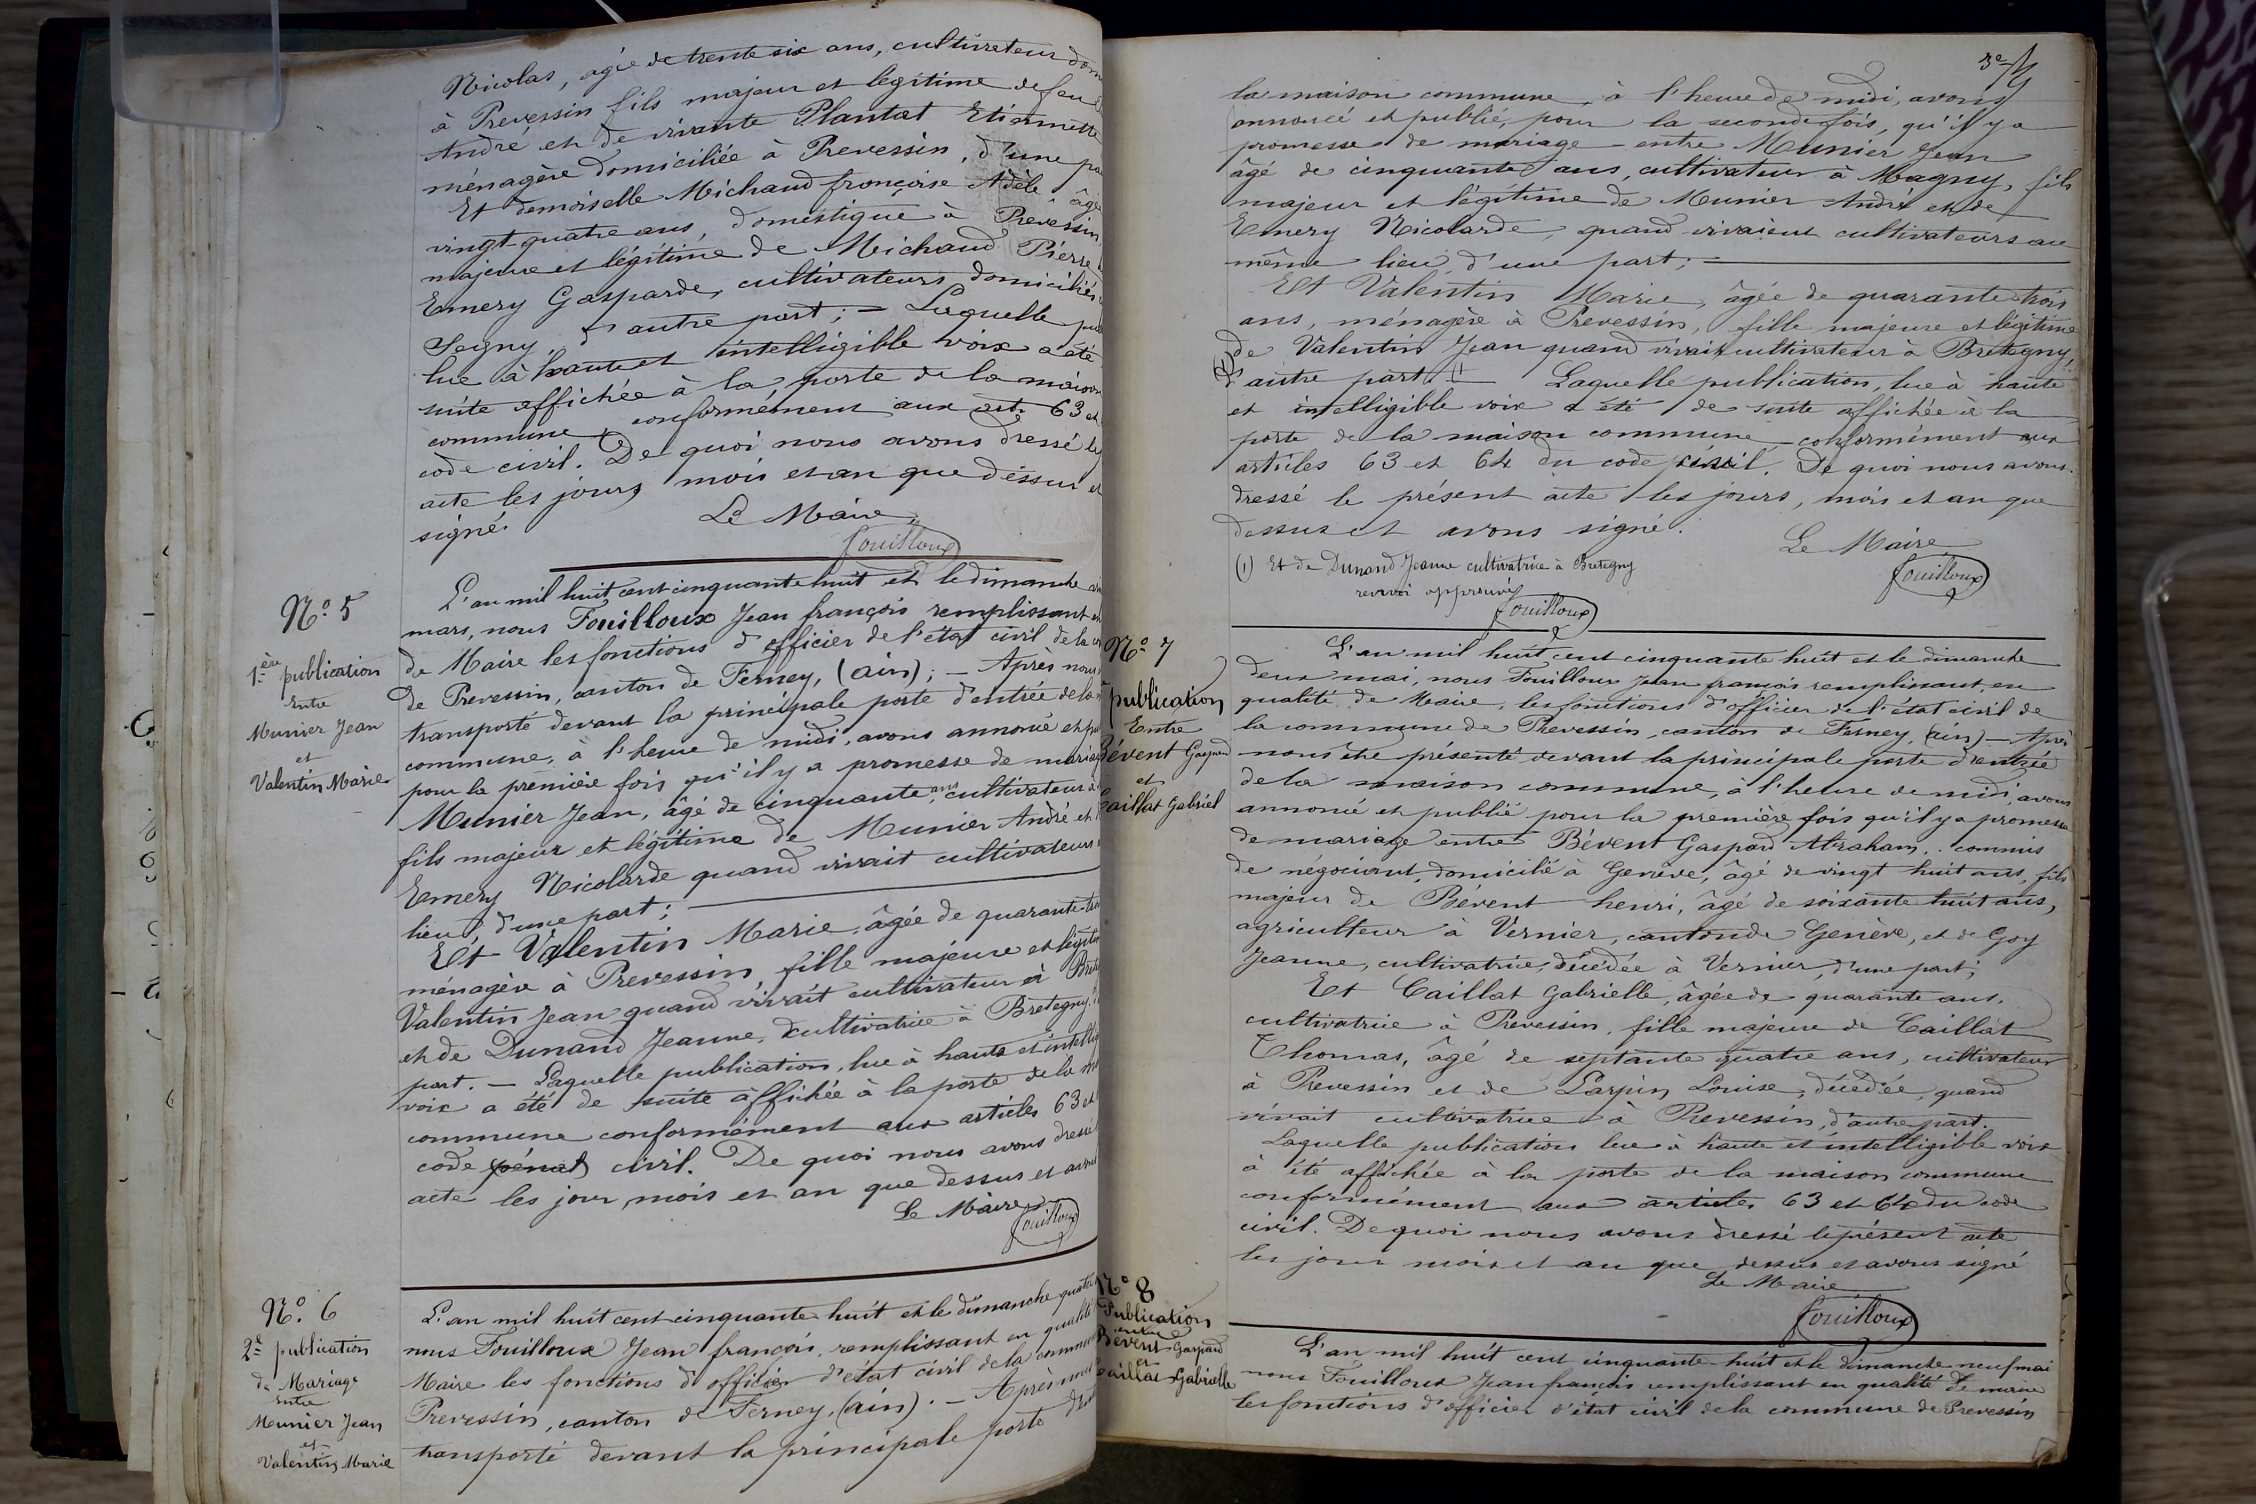 Nicolas, âgée de trente six ans, cultivateur dom
à Prevessin fils majeur et légitime de feu
André et de vivante Plantat Etiennette
ménagère domiciliée à Prevessin, d'une pa
Et demoiselle Michaud françoise Adèle âgé
vingt-quatre ans, domestique à Prevessin,
majeure et légitime de Michaud Pierre
Emery Gasparde, cultivateurs domiciliés
Segny d'autre part; — Laquelle pub
lue à haute et intelligible voix a été
suite affichée à la porte de la maison
commune, conformément aux art. 63 et
code civil. De quoi nous avons dressé le
acte les jours, mois et an que dessus et
signé.
Le Maire
Fouilloux
N.o 5
1.ère publication
Entre
Munier Jean
et
Valentin Marie
L'an mil huit cent cinquante huit et le dimanche
mars, nous Fouilloux Jean françois remplissant en
de Maire les fonctions d'officier de l'état civil de la co
de Prevessin, canton de Ferney, (ain); — Après nous
transporté devant la principale porte d'entrée de la
commune, à l'heure de midi, avons annoncé et pu
pour la première fois qu'il y a promesse de mariage
Munier Jean, âgé de cinquante ans, cultivateur à
fils majeur et légitime de Munier André et
Emery Nicolarde quand vivait cultivateurs
lieu, d'une part;
Et Valentin Marie, âgée de quarante-tro
ménagère à Prevessin, fille majeure et légiti
Valentin Jean quand vivait cultivateur à Bret
et de Dunand Jeanne, cultivatrice à Bretegny,
part. — Laquelle publication, lue à haute et intelli
voix a été de suite affichée à la porte de la m
commune conformément aux articles 63 et
code pénal civil. De quoi nous avons dressé
acte les jour, mois et an que dessus et avons
Le Maire
Fouilloux
N.o 6
2.e publication
de Mariage
entre
Munier Jean
et
Valentin Marie
L'an mil huit cent cinquante huit et le dimanche quatre
nous Fouilloux Jean françois, remplissant en qualité
Maire les fonctions d'officier d'état civil de la commune
Prevessin, canton de Ferney, (ain). — Après nous
transporté devant la principale porte d'ent
la maison commune, à l'heure de midi, avons
annoncé et publié, pour la seconde fois, qu'il y a
promesse de mariage entre Munier Jean
âgé de cinquante ans, cultivateur à Magny, fils
majeur et légitime de Munier André et de
Emery Nicolarde, quand vivaient cultivateurs au
même lieu, d'une part;
Et Valentin Marie, âgée de quarante trois
ans, ménagère à Prevessin, fille majeure et légitime
de Valentin Jean quand vivait cultivateur à Bretegny,
d'autre part. (1) Laquelle publication, lue à haute
et intelligible voix a été de suite affichée à la
porte de la maison commune conformément aux
articles 63 et 64 du code civil. De quoi nous avons
dressé le présent acte les jours, mois et an que
dessus et avons signé.
Le Maire
Fouilloux
(1) Et de Dunand Jeanne cultivatrice à Bretegny
renvoi approuvé
Fouilloux
N.o 7
publication
Entre
Bévent Gaspard
et
Caillat Gabriel
L'an mil huit cent cinquante huit et le dimanche
deux mai, nous Fouilloux Jean françois remplissant, en
qualité de Maire, les fonctions d'officier de l'état civil de
la commune de Prevessin, canton de Ferney, (ain) — Après
nous être présenté devant la principale porte d'entrée
de la maison commune, à l'heure de midi, avons
annoncé et publié pour la première fois qu'il y a promesse
de mariage entre Bévent Gaspard Abraham, commis
de négociant, domicilié à Genève, âgé de vingt huit ans, fils
majeur de Bévent henri, âgé de soixante huit ans,
agriculteur à Vernier, canton de Genève, et de Goy
Jeanne, cultivatrice, décédée à Vernier, d'une part;
Et Caillat Gabrielle, âgée de quarante ans,
cultivatrice à Prevessin, fille majeure de Caillat
Thomas, âgé de septante quatre ans, cultivateur
à Prevessin et de Larpin Louise, décédée, quand
vivait cultivatrice à Prevessin, d'autre part.
Laquelle publication lue à haute et intelligible voix
à été affichée à la porte de la maison commune
conformément aux articles 63 et 64 du code
civil. De quoi nous avons dressé le présent acte
les jour mois et an que dessus et avons signé
Le Maire
Fouilloux
N.o 8
Publication
entre
Bévent Gaspard
et
Caillat Gabrielle
L'an mil huit cent cinquante-huit et le dimanche neuf mai
nous Fouilloux Jean françois remplissant en qualité de maire
les fonctions d'officier d'état civil de la commune de Prevessin